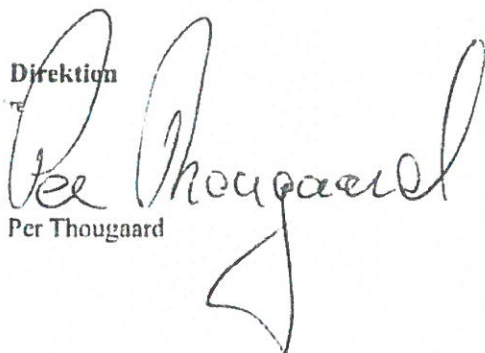 Direktion
Per Thougaard
Per Thougaard